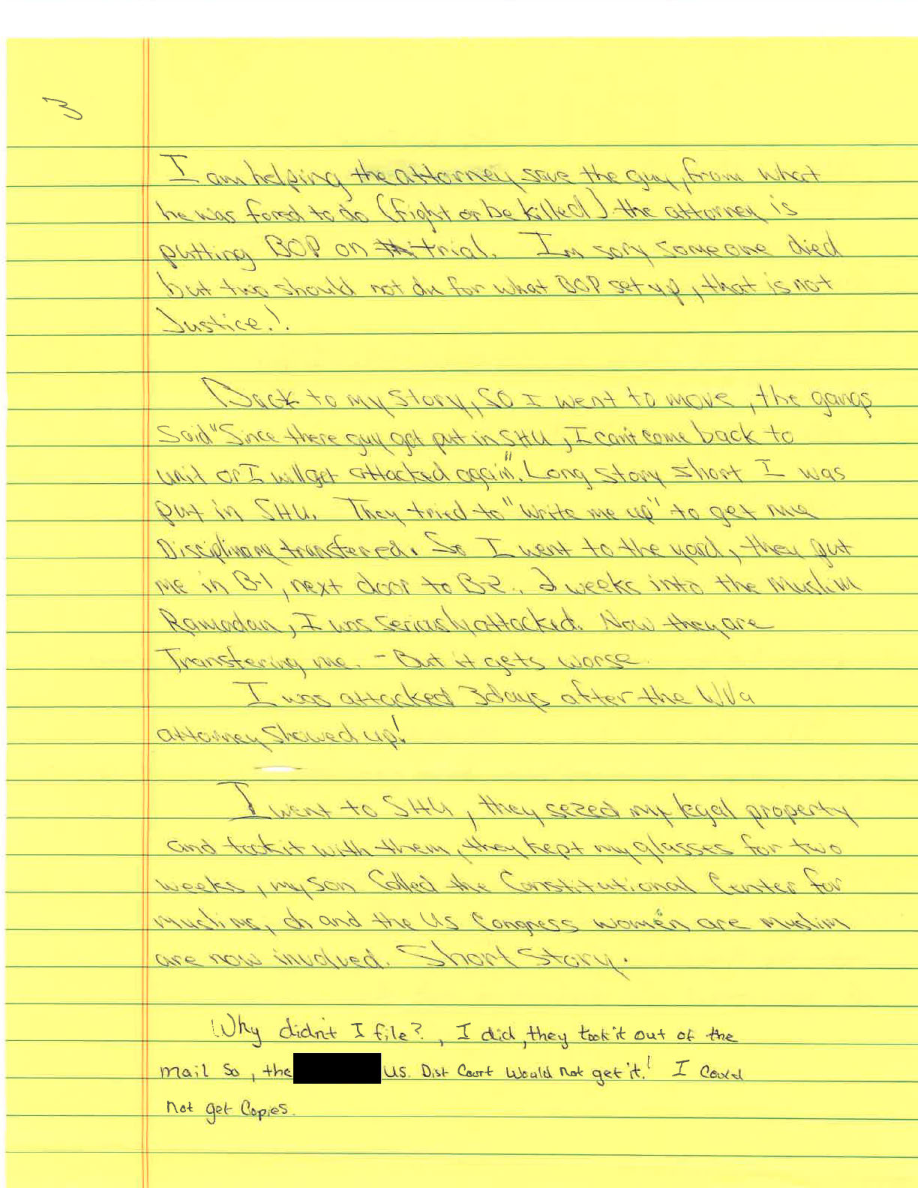 3
I am helping the attorney save the guy, from what
he was fored to do (fight or be killed) the attorney is
putting BOP on trial. Im sory someone died
but two should not die for what BOP set up, that is not
Justice!.
Back to my story, SO I went to move, the gangs
Said "Since there guy got put in SHU, I can't come back to
unit or I will get attacked again". Long story short I was
put in SHU. They tried to "write me up" to get me
Disciplinary transfered. So I went to the yard, they put
me in B-1, next door to B-2.. 2 weeks into the Muslim
Ramadan, I was seriously attacked. Now they are
Transfering me. - But it gets worse.
I was attacked 3 days after the WVa
attorney showed up!
I went to SHU, they sezed my legal property
and took it with them, they kept my glasses for two
weeks, my son Called the Constitutional Center for
muslims, oh and the US Congress women are muslim
are now involved. Short Story.
Why didn't I file?, I did, they took it out of the
mail So, the US. Dist Court Would Not get it! I Could
Not get Copies.